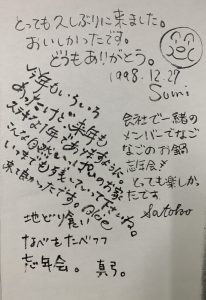 とっても久しぶりに来ました。
おいしかったです。
どうもありがとう。
1998.12.27
Sumi
今年もいろいろ
あったけど来年も
ステキな1年でありますように。
こんな自然いっぱいのお家
いつまでも残していって下さいね。
来て良かったです。
会社で一緒の
メンバーでなご
なごのお鍋
忘年会!
とっても楽しか
ったです
Satoko
地どり食い
なべもたべつつ
忘年会。